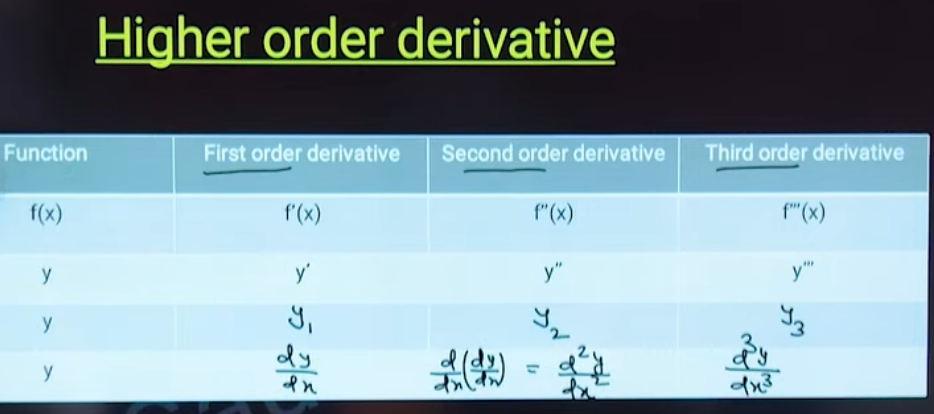 Higher order derivative
Function First order derivative Second order derivative Third order derivative
f(x) f'(x) f"(x) f'''(x)
y y' y" y'''
y y₁ y₂ y₃
y dy/dx d/dx(dy/dx) = d²y/dx² d³y/dx³